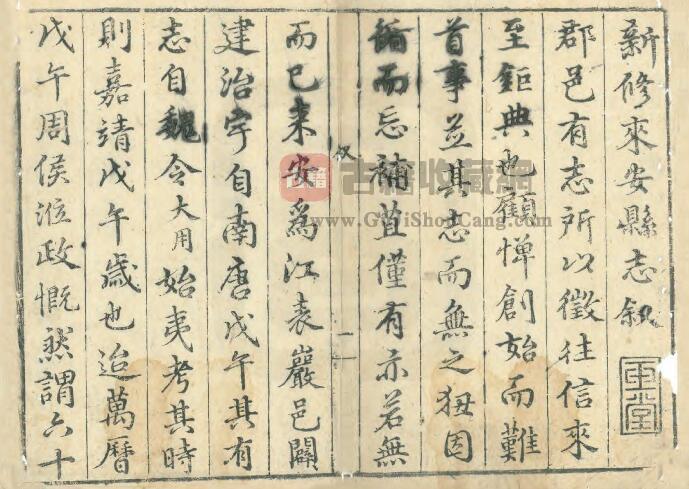 新修來安縣志叙
郡邑有志所以徵往信來
至鉅典也顧憚創始而難
首事並其志而無之狃因
循而忘補苴僅有亦若無
而已來安爲江表巖邑闢
建治宇自南唐戊午其有
志自魏令大用始夷考其時
則嘉靖戊午歲也迨萬曆
戊午周侯涖政慨然謂六十
玉堂
古籍收藏網
www.GujiShouCang.com